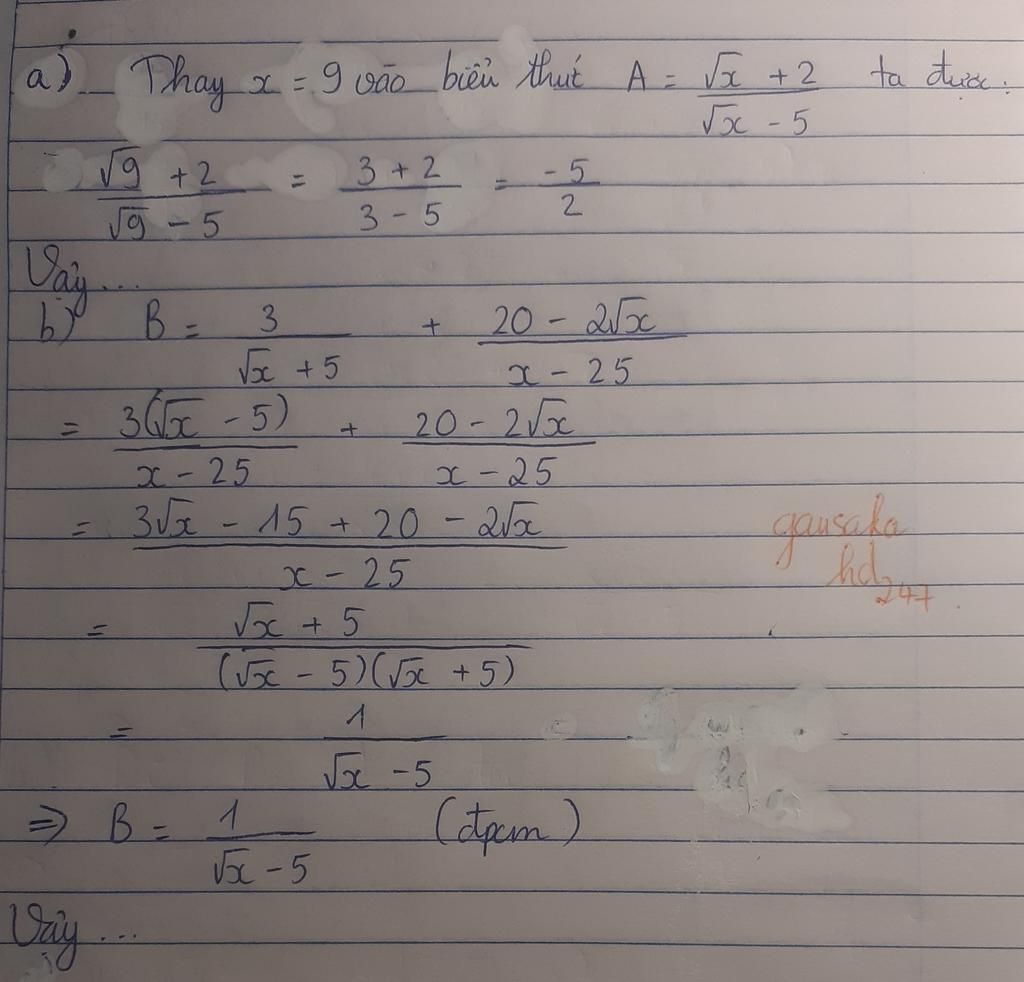 a) Thay x = 9 vào biểu thức A = (√x + 2)/(√x - 5) ta được:
(√9 + 2)/(√9 - 5) = (3 + 2)/(3 - 5) = -5/2
Vậy...
b) B = 3/(√x + 5) + (20 - 2√x)/(x - 25)
= 3(√x - 5)/(x - 25) + (20 - 2√x)/(x - 25)
= (3√x - 15 + 20 - 2√x)/(x - 25)
gausaka
hd247.
= (√x + 5)/((√x - 5)(√x + 5))
= 1/(√x - 5)
⇒ B = 1/(√x - 5) (đpcm)
Vậy...